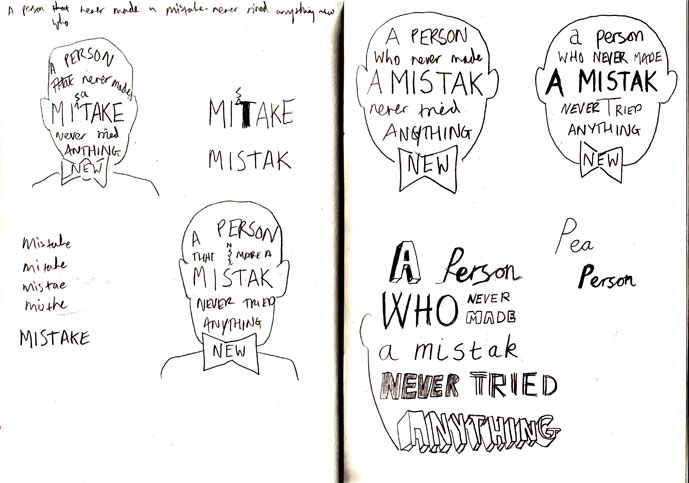 A person that never made a mistake never tried anything new
who
A PERSON
never made
sa
MITAKE
never tried
ANYTHING
NEW
s
MITAKE
MISTAK
Mistake
mitake
mistae
MISTAKE
A PERSON
THAT MADE A
MISTAK
NEVER TRIED
ANYTHING
NEW
A PERSON
who never made
A MISTAK
never tried
ANYTHING
NEW
a person
WHO NEVER MADE
A MISTAK
NEVER TRIED
ANYTHING
NEW
A Person
WHO NEVER
MADE
a mistak
NEVER TRIED
ANYTHING
Pea
Person